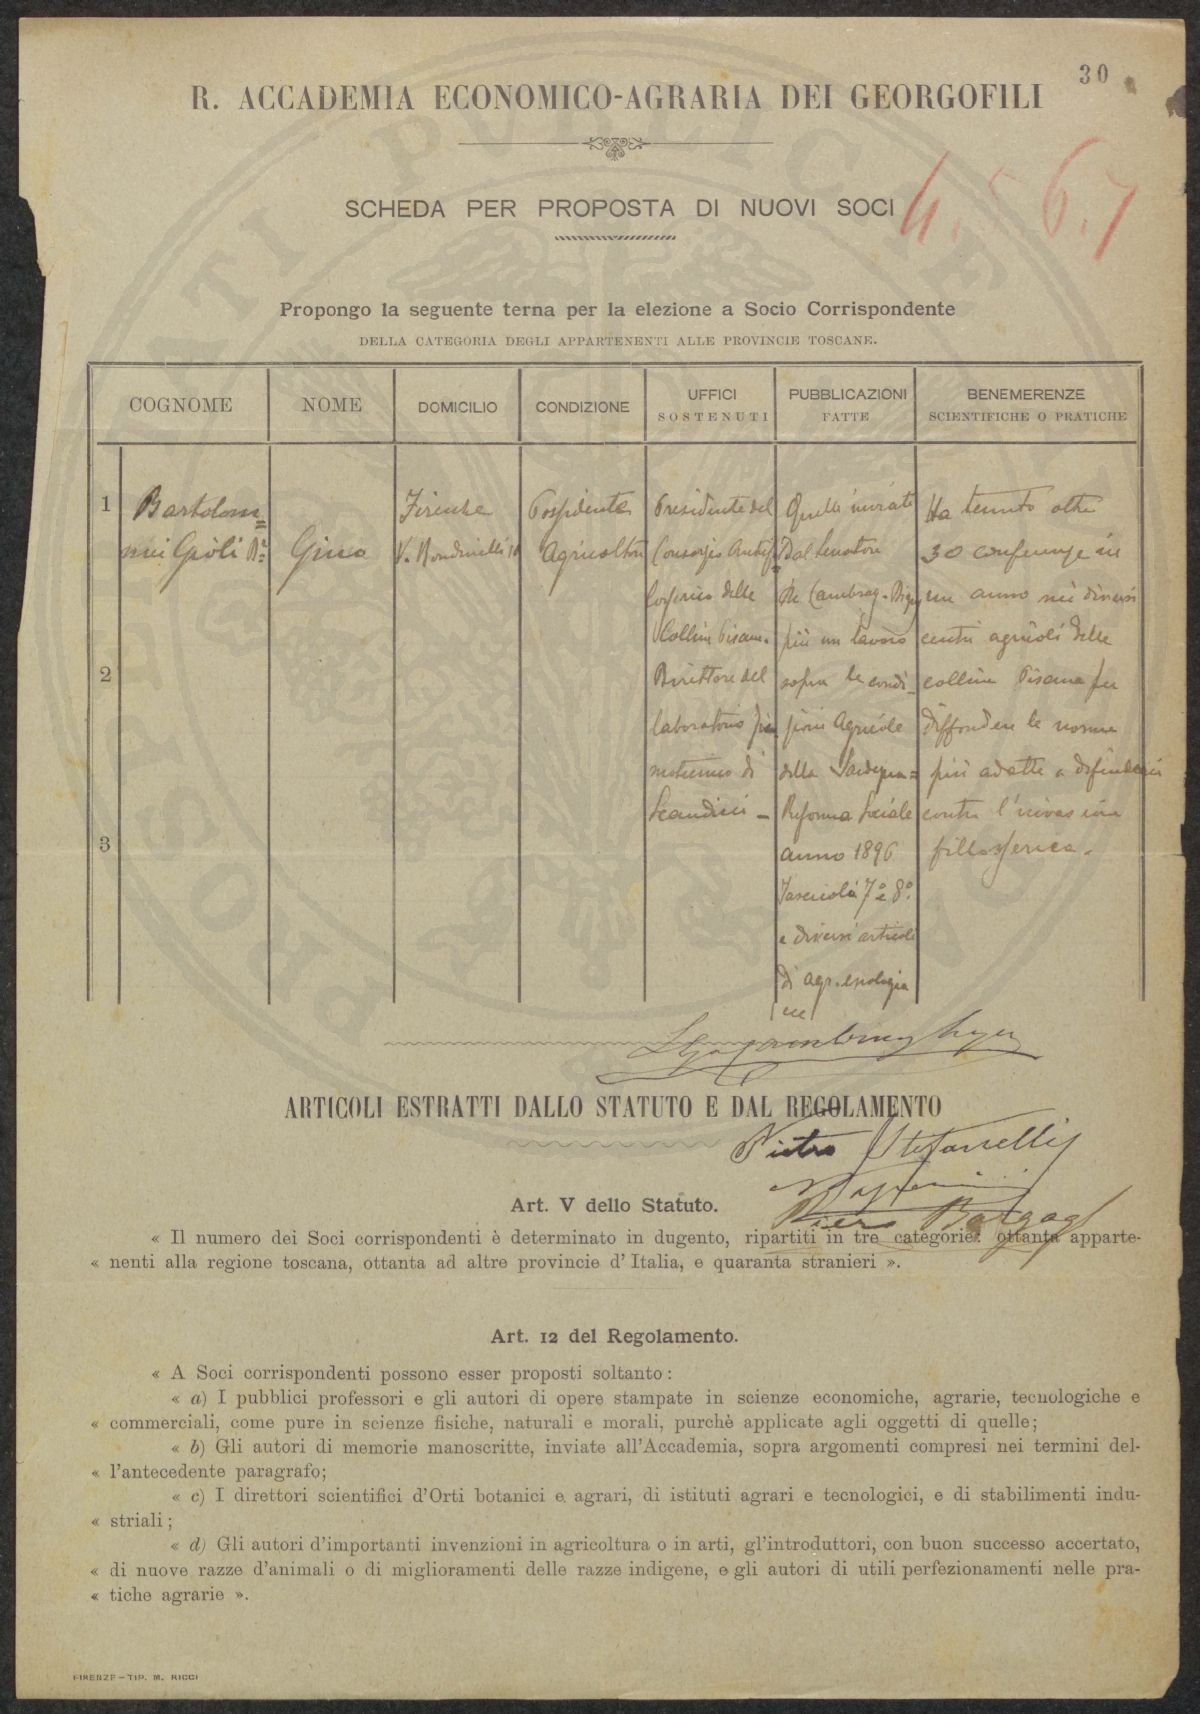 30
R. ACCADEMIA ECONOMICO-AGRARIA DEI GEORGOFILI
4. 5 6. 7
SCHEDA PER PROPOSTA DI NUOVI SOCI
Propongo la seguente terna per la elezione a Socio Corrispondente
DELLA CATEGORIA DEGLI APPARTENENTI ALLE PROVINCIE TOSCANE.
COGNOME
NOME
DOMICILIO
CONDIZIONE
UFFICI
SOSTENUTI
PUBBLICAZIONI
FATTE
BENEMERENZE
SCIENTIFICHE O PRATICHE
1
2
3
Bartolom=
mei Gioli
Gino
Firenze
V. Rondinelli 10
Possidente
Agricoltore
Presidente del
Consorzio Antifil
losserico delle
Colline Pisane.
Direttore del
laboratorio
di
Scandicci –
Quelle inviate
dal Senatore
De Cambray-Digny
più un lavoro
sopra le condi-
zioni Agricole
della Sardegna=
Riforma Sociale
anno 1896
Fascicoli 7º e 8º.
e diversi articoli
di agr. enologia
ecc
Ha tenuto oltre
30 conferenze in
un anno nei diversi
centri agricoli delle
colline Pisane per
diffondere le norme
più adatte a difendersi
contro l'invasione
fillosserica.
Pietro Stefanelli
Piero Bargagli
ARTICOLI ESTRATTI DALLO STATUTO E DAL REGOLAMENTO
Art. V dello Statuto.
« Il numero dei Soci corrispondenti è determinato in dugento, ripartiti in tre categorie: ottanta apparte-
« nenti alla regione toscana, ottanta ad altre provincie d'Italia, e quaranta stranieri ».
Art. 12 del Regolamento.
« A Soci corrispondenti possono esser proposti soltanto:
« a) I pubblici professori e gli autori di opere stampate in scienze economiche, agrarie, tecnologiche e
« commerciali, come pure in scienze fisiche, naturali e morali, purchè applicate agli oggetti di quelle;
« b) Gli autori di memorie manoscritte, inviate all'Accademia, sopra argomenti compresi nei termini del-
« l'antecedente paragrafo;
« c) I direttori scientifici d'Orti botanici e agrari, di istituti agrari e tecnologici, e di stabilimenti indu-
« striali;
« d) Gli autori d'importanti invenzioni in agricoltura o in arti, gl'introduttori, con buon successo accertato,
« di nuove razze d'animali o di miglioramenti delle razze indigene, e gli autori di utili perfezionamenti nelle pra-
« tiche agrarie ».
FIRENZE – TIP. M. RICCI